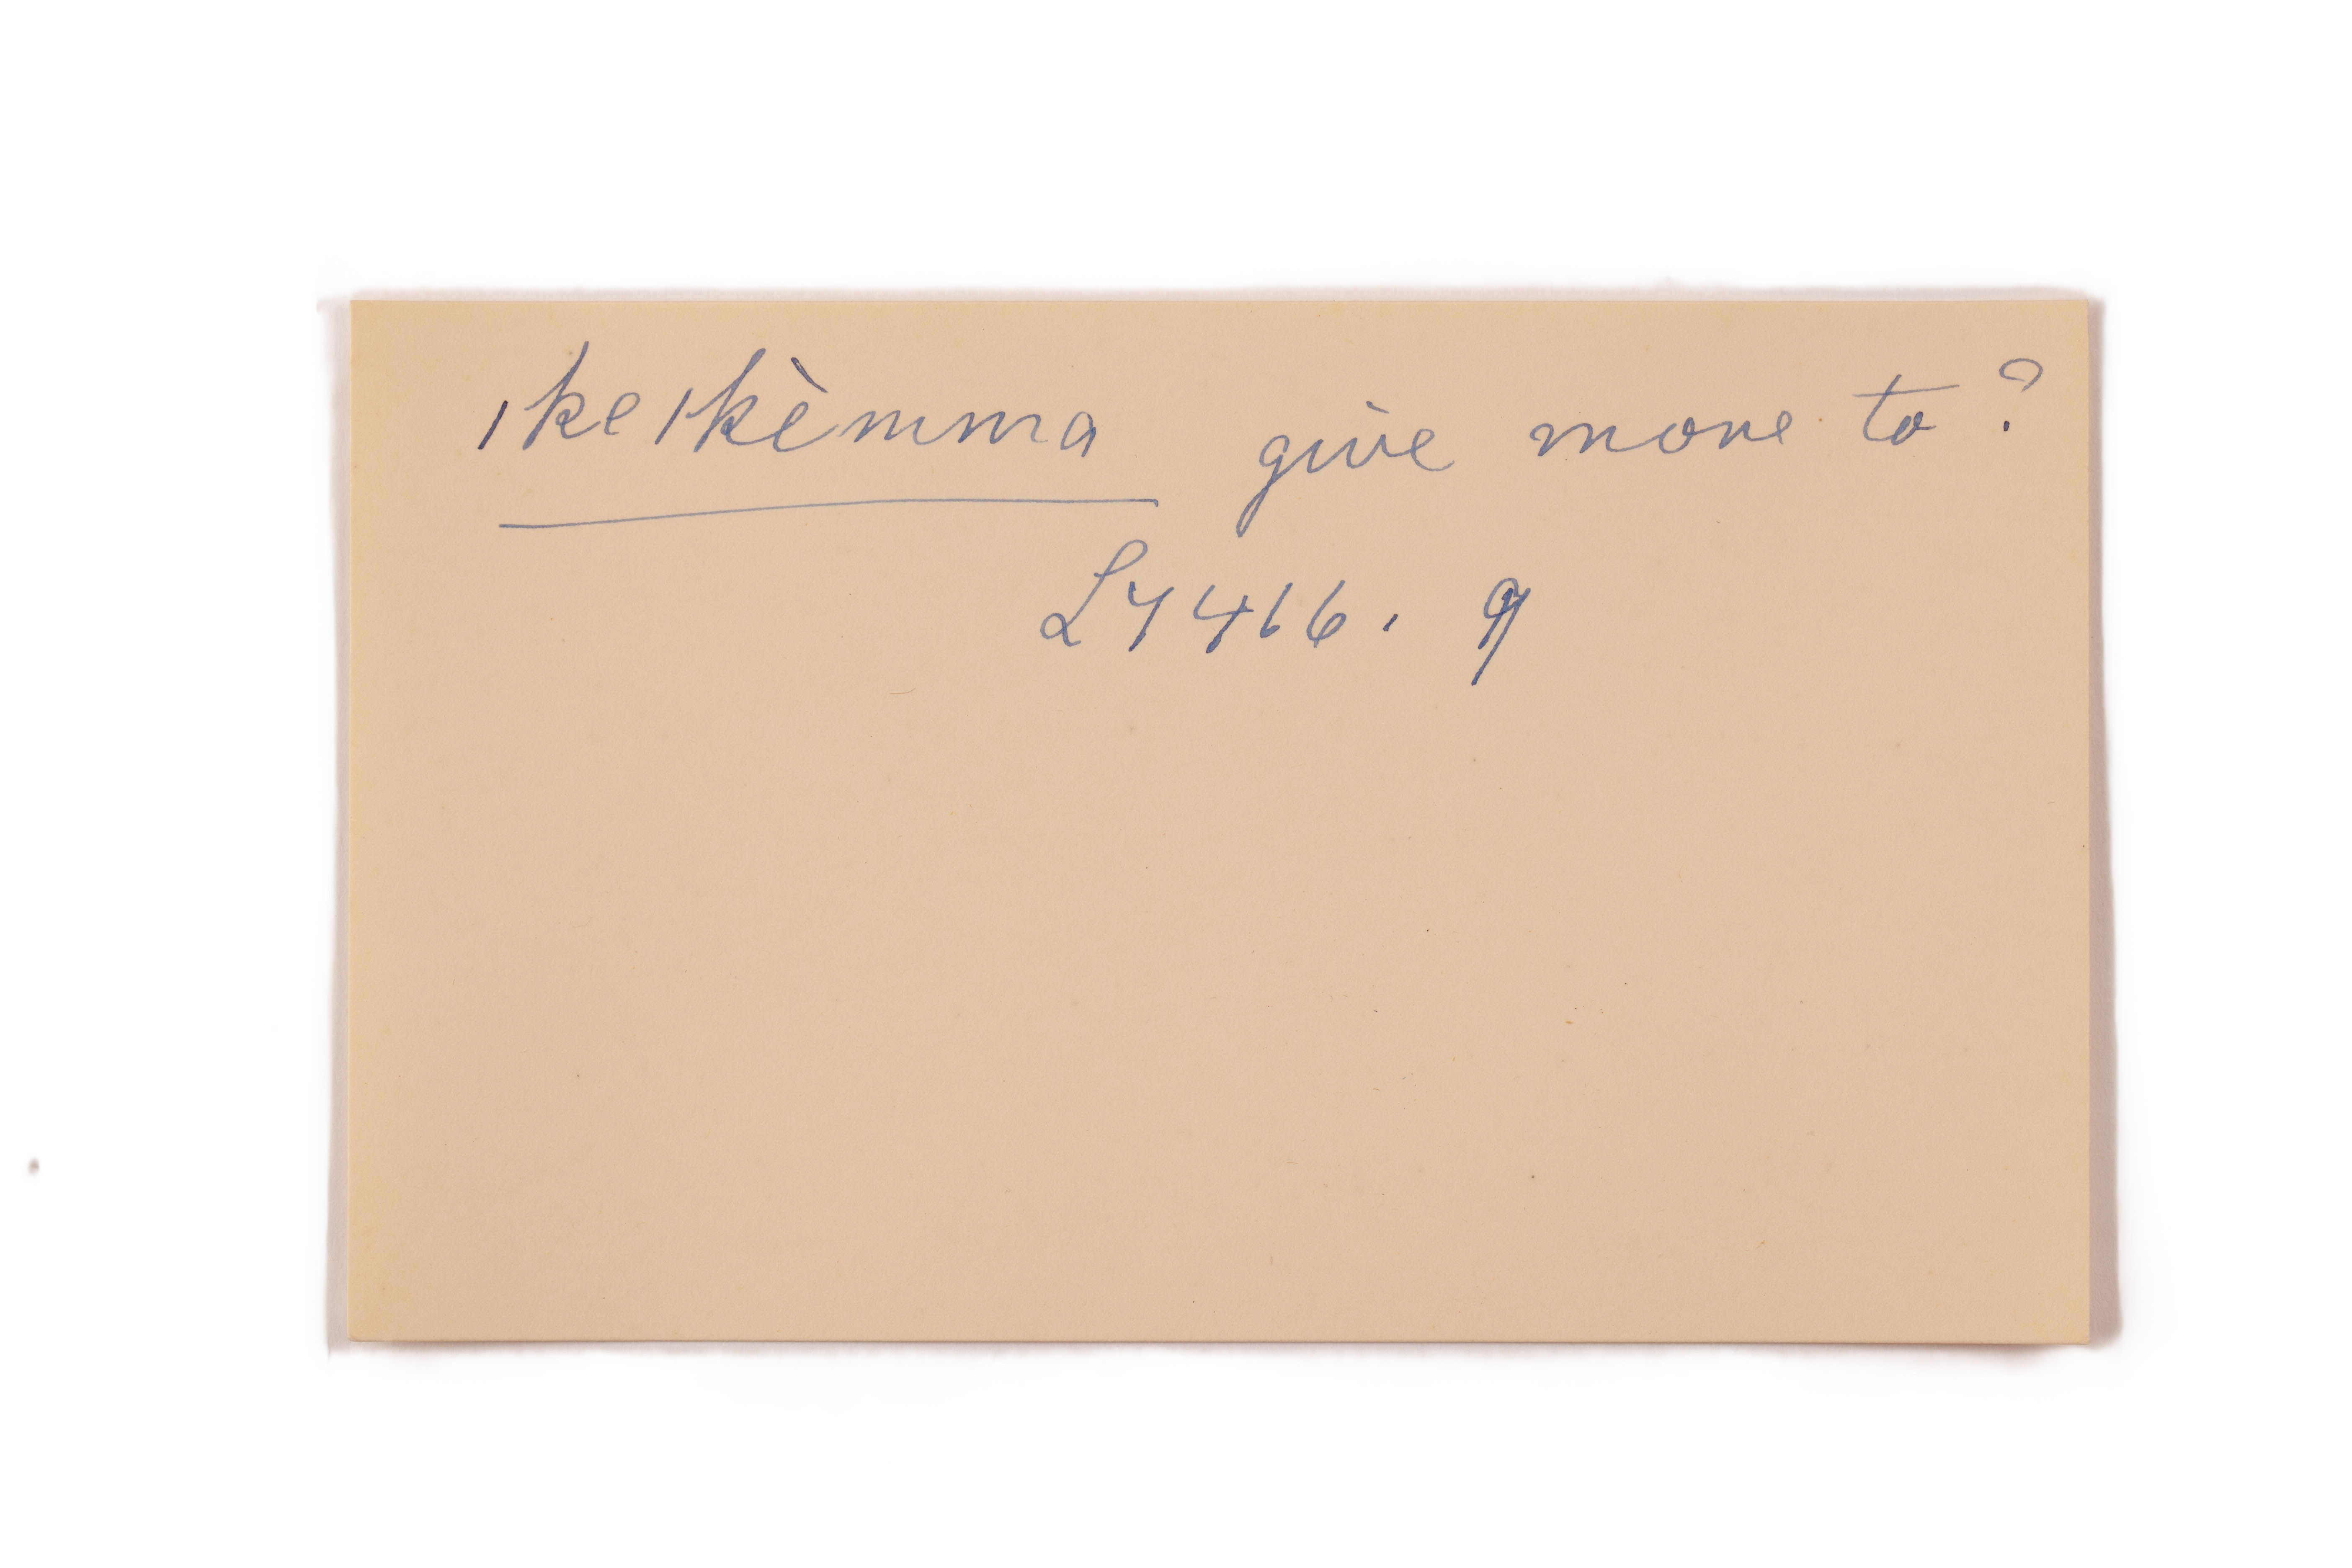 ikeikèmma give more to?
Ly 416. 9